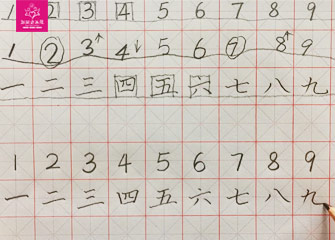 1 2 3 4 5 6 7 8 9
1 2 3 4 5 6 7 8 9
一 二 三 四 五 六 七 八 九
1 2 3 4 5 6 7 8 9
一 二 三 四 五 六 七 八 九